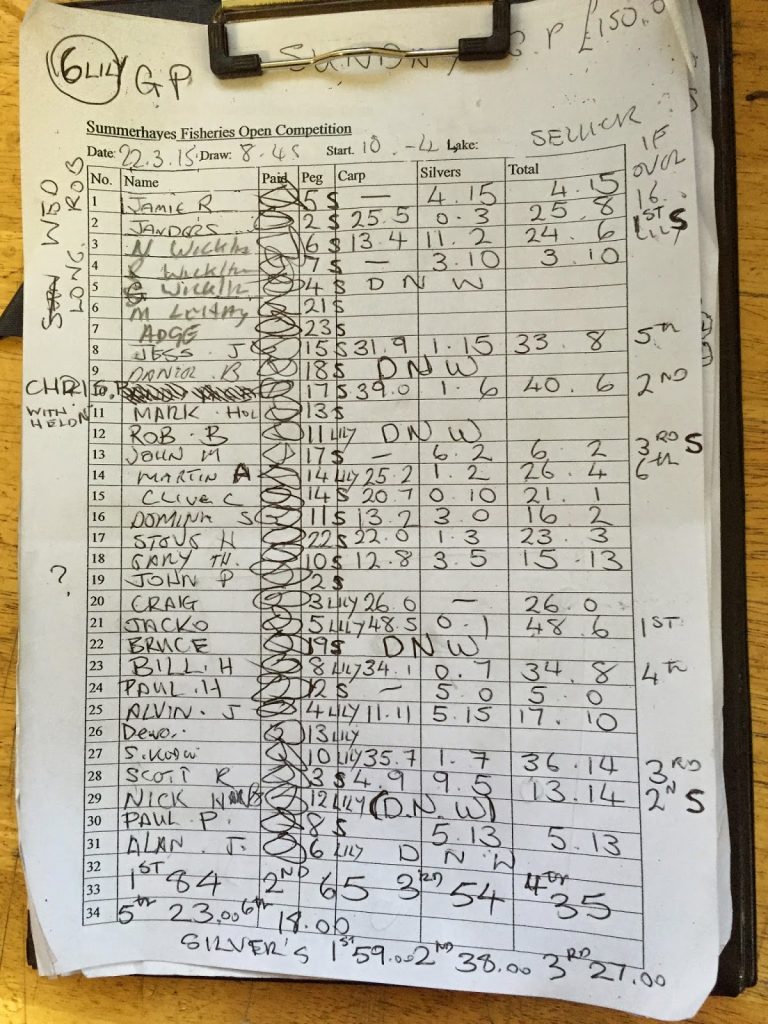 SUNDAY G.P £150.0
6 LILY GP
Summerhayes Fisheries Open Competition
Date: 22.3.15 Draw: 8.45 Start. 10 -4 Lake: SELLICK
IF OVER 16
LONG ROB
No. Name Paid Peg Carp Silvers Total
1 JAMIE R 5 S — 4.15 4.15
2 JANDERS 2 S 25.5 0.3 25 8 1ST S
3 6 S 13.4 11.2 24.6 LILY
4 7 S — 3.10 3.10
5 4 S D N W
6 21 S
7 ADGE 23 S
8 JESS J 15 S 31.9 1.15 33 8 5th
9 DANIEL B 18 S D N W
10 CHRIS.B 17 39.0 1.6 40.6 2ND
WITH HELD
11 MARK HOL 13 S
12 ROB.B 11 LILY D N W
13 JOHN M 17 S — 6.2 6.2 3RD S
14 MARTIN A 14 LILY 25.2 1.2 26.4 6th
15 CLIVE C 14 S 20.7 0.10 21.1
16 DOMINIK S 11 S 13.2 3.0 16.2
17 STEVE H 22 S 22.0 1.3 23.3
18 GARY TH. 10 S 12.8 3.5 15.13
19 JOHN P 2 S
?
20 CRAIG 3 LILY 26.0 — 26.0
21 JACKO 5 LILY 48.5 0.1 48.6 1ST
22 BRUCE 19 S D N W
23 BILL.H 8 LILY 34.1 0.7 34.8 4th
24 PAUL.H 12 S — 5.0 5.0
25 ALVIN.J 4 LILY 11.11 5.15 17.10
26 13 LILY
27 10 LILY 35.7 1.7 36.14 3RD
28 SCOTT R 3 S 4.9 9.5 13.14 2N S
29 NICK 12 LILY (D.N.W)
30 PAUL P. 8 S 5.13 5.13
31 ALAN J. 6 LILY D N W
32
33 1ST 84 2ND 65 3RD 54 4th 35
34 5th 23.00 6th 18.00
SILVER'S 1ST 59.00 2ND 38.00 3RD 27.00